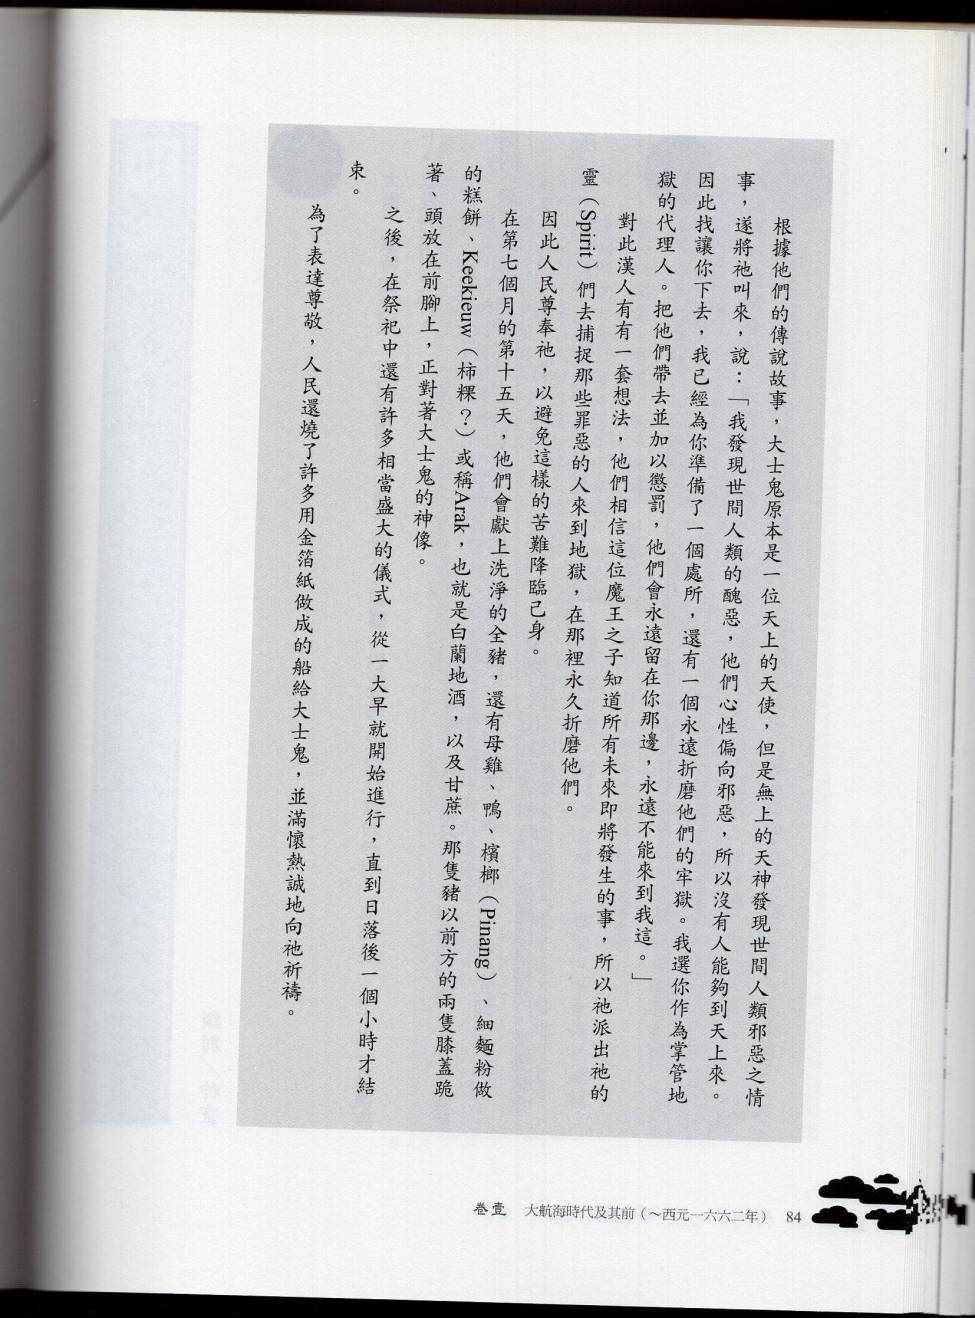 根據他們的傳說故事，大士鬼原本是一位天上的天使，但是無上的天神發現世間人類邪惡之情
事，遂將祂叫來，說：「我發現世間人類的醜惡，他們心性偏向邪惡，所以沒有人能夠到天上來。
因此找讓你下去，我已經為你準備了一個處所，還有一個永遠折磨他們的牢獄。我選你作為掌管地
獄的代理人。把他們帶去並加以懲罰，他們會永遠留在你那邊，永遠不能來到我這。」
對此漢人有有一套想法，他們相信這位魔王之子知道所有未來即將發生的事，所以祂派出祂的
靈（Spirit）們去捕捉那些罪惡的人來到地獄，在那裡永久折磨他們。
因此人民尊奉祂，以避免這樣的苦難降臨己身。
在第七個月的第十五天，他們會獻上洗淨的全豬，還有母雞、鴨、檳榔（Pinang）、細麵粉做
的糕餅、Keekieuw（柿粿？）或稱Arak，也就是白蘭地酒，以及甘蔗。那隻豬以前方的兩隻膝蓋跪
著、頭放在前腳上，正對著大士鬼的神像。
之後，在祭祀中還有許多相當盛大的儀式，從一大早就開始進行，直到日落後一個小時才結
束。
為了表達尊敬，人民還燒了許多用金箔紙做成的船給大士鬼，並滿懷熱誠地向祂祈禱。
卷壹 大航海時代及其前（～西元一六六二年） 84